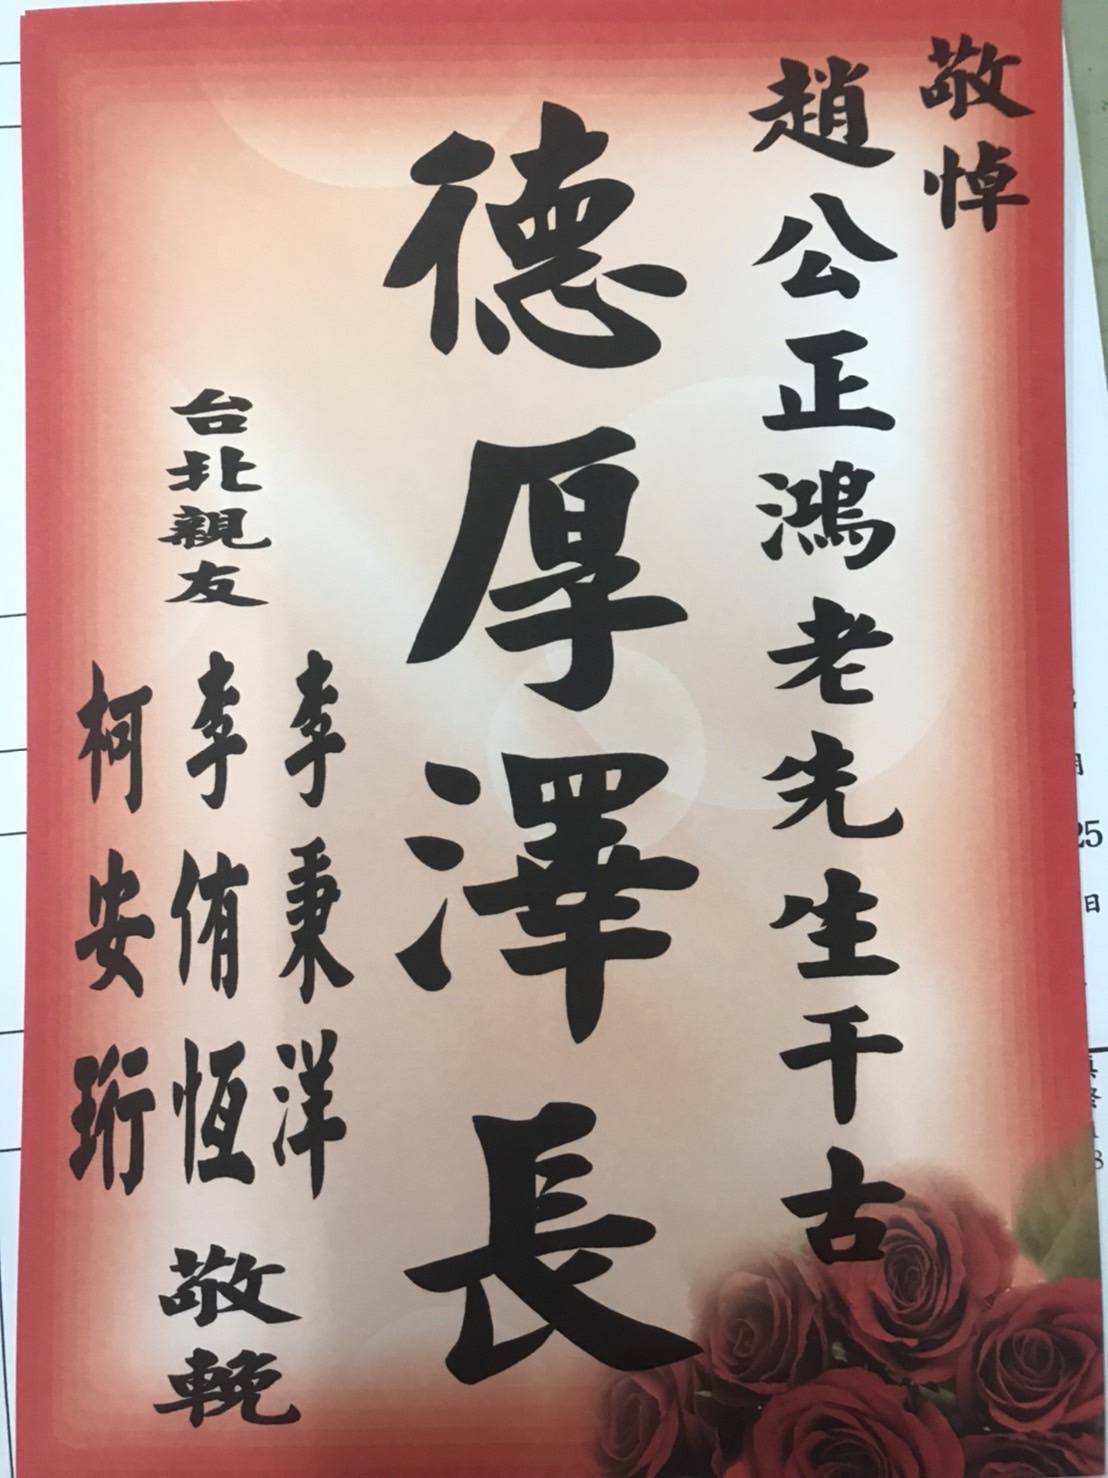 敬悼
趙公正鴻老先生千古
德厚澤長
台北親友
李秉洋
李侑恆
柯安珩
敬輓
25
日